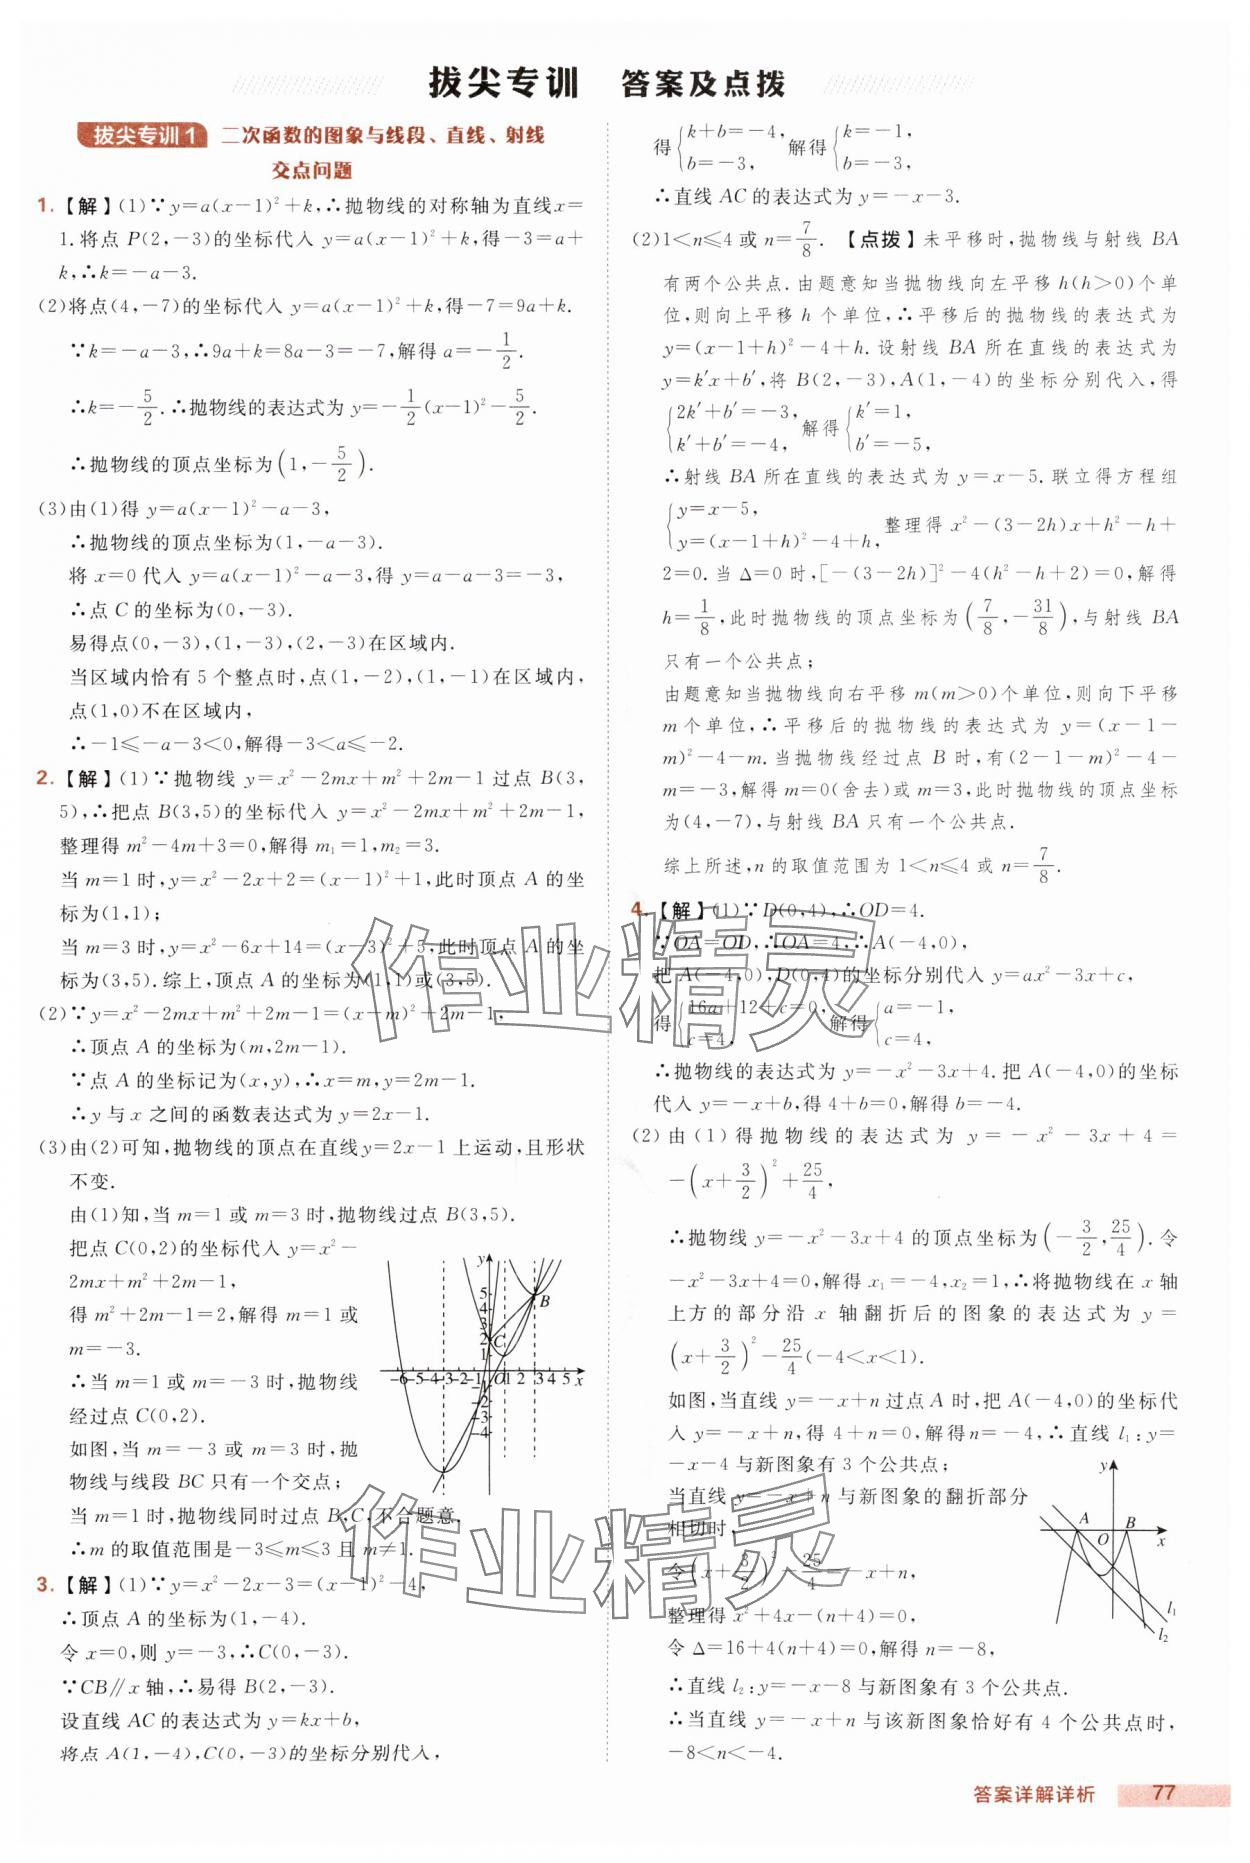 拔尖专训 答案及点拨
拔尖专训1 二次函数的图象与线段、直线、射线
交点问题
1.【解】(1)∵y=a(x-1)²+k,∴抛物线的对称轴为直线x=
1.将点P(2,-3)的坐标代入y=a(x-1)²+k,得-3=a+
k,∴k=-a-3.
(2)将点(4,-7)的坐标代入y=a(x-1)²+k,得-7=9a+k.
∵k=-a-3,∴9a+k=8a-3=-7,解得a=-1/2.
∴k=-5/2.∴抛物线的表达式为y=-1/2(x-1)²-5/2.
∴抛物线的顶点坐标为(1,-5/2).
(3)由(1)得y=a(x-1)²-a-3,
∴抛物线的顶点坐标为(1,-a-3).
将x=0代入y=a(x-1)²-a-3,得y=a-a-3=-3,
∴点C的坐标为(0,-3).
易得点(0,-3),(1,-3),(2,-3)在区域内.
当区域内恰有5个整点时,点(1,-2),(1,-1)在区域内,
点(1,0)不在区域内,
∴-1≤-a-3<0,解得-3<a≤-2.
2.【解】(1)∵抛物线y=x²-2mx+m²+2m-1过点B(3,
5),∴把点B(3,5)的坐标代入y=x²-2mx+m²+2m-1,
整理得m²-4m+3=0,解得m₁=1,m₂=3.
当m=1时,y=x²-2x+2=(x-1)²+1,此时顶点A的坐
标为(1,1);
当m=3时,y=x²-6x+14=(x-3)²+5,此时顶点A的坐
标为(3,5).综上,顶点A的坐标为(1,1)或(3,5).
(2)∵y=x²-2mx+m²+2m-1=(x-m)²+2m-1,
∴顶点A的坐标为(m,2m-1).
∵点A的坐标记为(x,y),∴x=m,y=2m-1.
∴y与x之间的函数表达式为y=2x-1.
(3)由(2)可知,抛物线的顶点在直线y=2x-1上运动,且形状
不变.
由(1)知,当m=1或m=3时,抛物线过点B(3,5).
把点C(0,2)的坐标代入y=x²-
2mx+m²+2m-1,
得m²+2m-1=2,解得m=1或
m=-3.
∴当m=1或m=-3时,抛物线
经过点C(0,2).
如图,当m=-3或m=3时,抛
物线与线段BC只有一个交点;
当m=1时,抛物线同时过点B,C,不合题意.
∴m的取值范围是-3≤m≤3且m≠1.
y
5
4
3
2
1
B
C
-6-5-4-3-2-1 O 1 2 3 4 5 x
-1
-2
-3
-4
3.【解】(1)∵y=x²-2x-3=(x-1)²-4,
∴顶点A的坐标为(1,-4).
令x=0,则y=-3,∴C(0,-3).
∵CB∥x轴,∴易得B(2,-3).
设直线AC的表达式为y=kx+b,
将点A(1,-4),C(0,-3)的坐标分别代入,
得{k+b=-4, b=-3, 解得{k=-1, b=-3,
∴直线AC的表达式为y=-x-3.
(2)1<n≤4或n=7/8.【点拨】未平移时,抛物线与射线BA
有两个公共点.由题意知当抛物线向左平移h(h>0)个单
位,则向上平移h个单位,∴平移后的抛物线的表达式为
y=(x-1+h)²-4+h.设射线BA所在直线的表达式为
y=k′x+b′,将B(2,-3),A(1,-4)的坐标分别代入,得
{2k′+b′=-3, k′+b′=-4, 解得{k′=1, b′=-5,
∴射线BA所在直线的表达式为y=x-5.联立得方程组
{y=x-5, y=(x-1+h)²-4+h, 整理得x²-(3-2h)x+h²-h+
2=0.当Δ=0时,[-(3-2h)]²-4(h²-h+2)=0,解得
h=1/8,此时抛物线的顶点坐标为(7/8,-31/8),与射线BA
只有一个公共点;
由题意知当抛物线向右平移m(m>0)个单位,则向下平移
m个单位,∴平移后的抛物线的表达式为y=(x-1-
m)²-4-m.当抛物线经过点B时,有(2-1-m)²-4-
m=-3,解得m=0(舍去)或m=3,此时抛物线的顶点坐标
为(4,-7),与射线BA只有一个公共点.
综上所述,n的取值范围为1<n≤4或n=7/8.
4.【解】(1)∵D(0,4),∴OD=4.
∵OA=OD,∴OA=4,∴A(-4,0),
把A(-4,0),D(0,4)的坐标分别代入y=ax²-3x+c,
得{16a+12+c=0, c=4, 解得{a=-1, c=4,
∴抛物线的表达式为y=-x²-3x+4.把A(-4,0)的坐标
代入y=-x+b,得4+b=0,解得b=-4.
(2)由(1)得抛物线的表达式为y=-x²-3x+4=
-(x+3/2)²+25/4,
∴抛物线y=-x²-3x+4的顶点坐标为(-3/2,25/4).令
-x²-3x+4=0,解得x₁=-4,x₂=1,∴将抛物线在x轴
上方的部分沿x轴翻折后的图象的表达式为y=
(x+3/2)²-25/4(-4<x<1).
如图,当直线y=-x+n过点A时,把A(-4,0)的坐标代
入y=-x+n,得4+n=0,解得n=-4,∴直线l₁:y=
-x-4与新图象有3个公共点;
当直线y=-x+n与新图象的翻折部分
相切时,
令(x+3/2)²-25/4=-x+n,
整理得x²+4x-(n+4)=0,
令Δ=16+4(n+4)=0,解得n=-8,
∴直线l₂:y=-x-8与新图象有3个公共点.
∴当直线y=-x+n与该新图象恰好有4个公共点时,
-8<n<-4.
y
A
B
O
x
l₁
l₂
作业精灵
作业精灵
答案详解详析 77